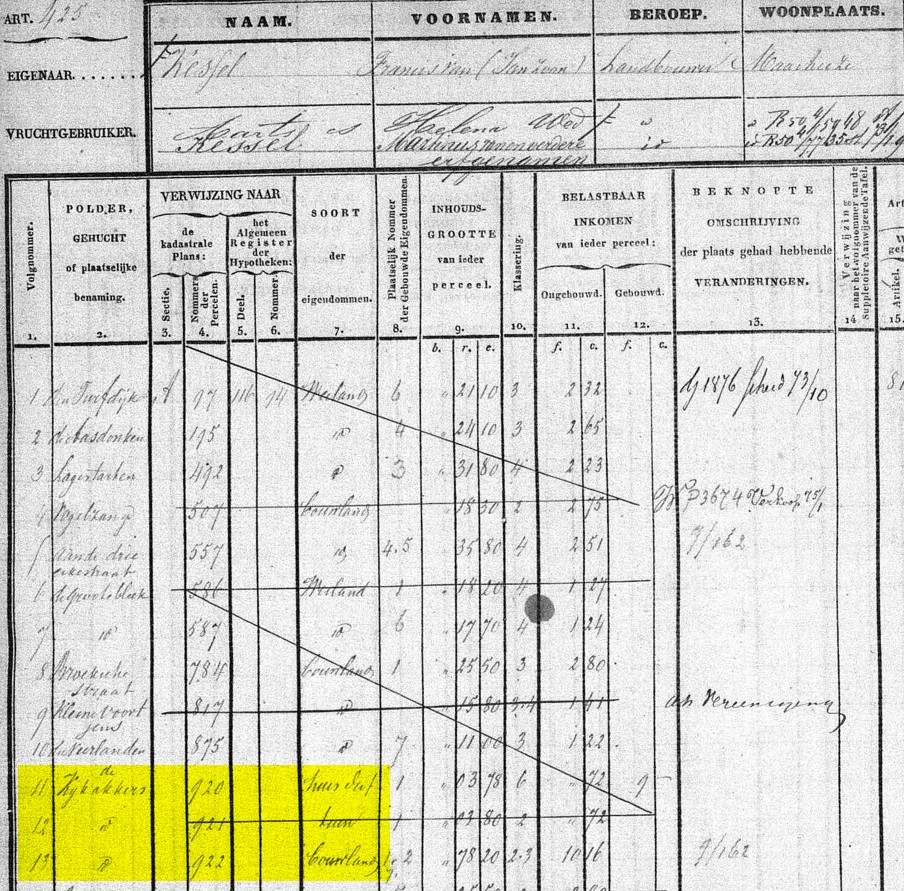 ART. 425
NAAM. VOORNAMEN. BEROEP. WOONPLAATS.
EIGENAAR....... Kessel Francis van (Janzoon) Landbouwer Maarheeze
VRUCHTGEBRUIKER. Aarts Helena Wed
Kessel
erfgenamen
Volgnommer.
POLDER,
GEHUCHT
of plaatselijke
benaming.
VERWIJZING NAAR
de
kadastrale
Plans:
het
Algemeen
Register
der
Hypotheken:
Sectie.
Nommers
der
Perceelen.
Deel.
Nommer.
SOORT
der
eigendommen.
Plaatselijk Nommer
der Gebouwde Eigendommen.
INHOUDS-
GROOTTE
van ieder
perceel.
Klassering.
BELASTBAAR
INKOMEN
van ieder perceel:
Ongebouwd. Gebouwd.
BEKNOPTE
OMSCHRIJVING
der plaats gehad hebbende
VERANDERINGEN.
Verwijzing
naar het volgnommer van de
Suppletoire Aanwijzende Tafel.
Artikel.
1. 2. 3. 4. 5. 6. 7. 8. 9. 10. 11. 12. 13. 14 15.
b. r. e. f. c. f. c.
1 den Turfdijk A 97 116 94 Weiland 6 " 21 10 3 2 32 dj 1876 scheid 73/10
2 195 " 4 " 24 10 3 2 65
3 492 " 3 " 31 80 4 2 23
4 Vogelzang 507 bouwland " 18 30 2 2 75 P3674 Verkoop 75/1
5 aan de drie 557 " 4.5 " 35 80 4 2 51 9/162
eikestraat
6 de Groote bleek 586 Weiland 1 " 18 20 4 1 27
7 " 587 " 6 " 17 70 4 1 24
8 784 bouwland 1 " 25 50 3 2 80
straat
9 Kleine Voort 817 " " 15 80 3.4 1 41 als Vereeniging
jens
10 de Neerlanden 875 " 7 " 11 00 3 1 22
de
11 Kijkakkers 920 huis & erf 1 " 03 78 6 " 72 9 -
12 " 921 tuin 1 " 03 80 2 " 72
13 " 922 bouwland 1. 2 " 78 20 2.3 10 16 9/162